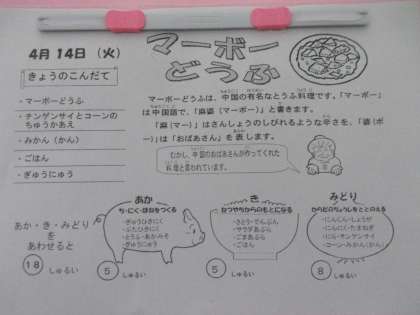 4月14日（火）
マーボー
どうふ
きょうのこんだて
・マーボーどうふ
・チンゲンサイとコーンの
ちゅうかあえ
・みかん（かん）
・ごはん
・ぎゅうにゅう
マーボーどうふは、中国の有名なとうふ料理です。「マーボー」
は中国語で、「麻婆（マーボー）」と書きます。
「麻（マー）」はさんしょうのしびれるような辛さを、「婆（ボ
ー）」は「おばあさん」を表します。
むかし、中国のおばあさんが作ってくれた
料理と言われています。
あか・き・みどり
を
あわせると
18 しゅるい
あか
ち・にく・ほねをつくる
・ぎゅうひきにく
・ぶたひきにく
・とうふ・あかみそ
・ぎゅうにゅう
5 しゅるい
き
ねつやちからのもとになる
・さとう・でんぷん
・サラダあぶら
・ごまあぶら
・ごはん
5 しゅるい
みどり
からだのちょうしをととのえる
・にんじん・しょうが
・にんにく・たまねぎ
・にら・チンゲンサイ
・コーン・みかん（かん）
8 しゅるい